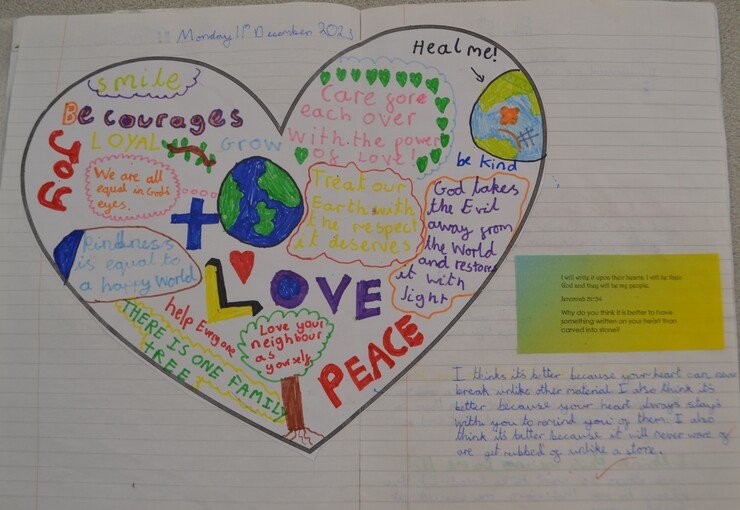 Monday 11th December 2023
Heal me!
smile
Be courages
LOYAL
GROW
Joy
Care gore
each over
with the power
OF Love!
be kind
We are all
equal in God's
eyes.
Treat our
Earth with
the respect
it deserves
God takes
the Evil
away from
the World
and restores
it with
light
Kindness
is equal to
a happy World
LOVE
help Everyone
THERE IS ONE FAMILY
TREE
Love your
neighbour
as yourself
PEACE
I will write it upon their hearts. I will be their
God and they will be my people.
Jeremiah 31:34
Why do you think it is better to have
something written on your heart than
carved into stone?
I thinks it's better because your heart can never
break unlike other material. I also think it's
better because your heart always stays
with you to remind you of them. I also
think it's better because it will never ware of
are get rubbed of unlike a stone.